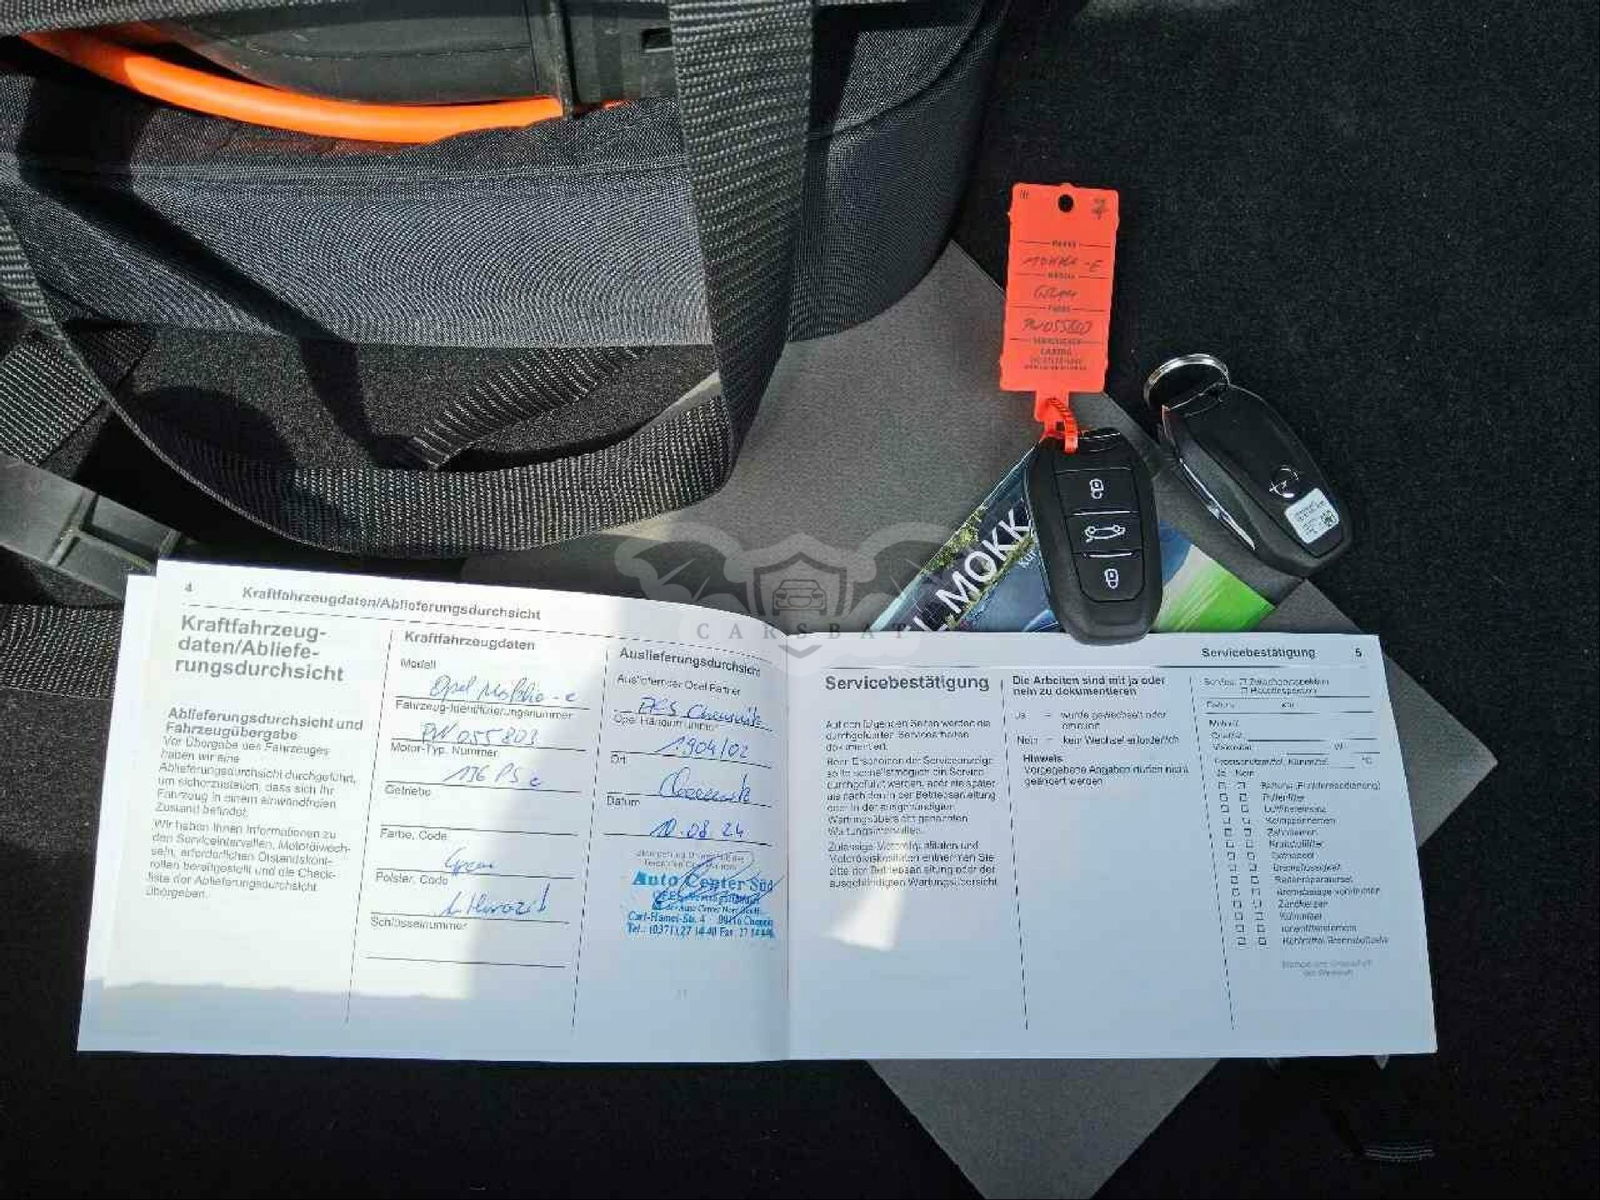 MOKKA-E
PW055803
CARSBAT
MOKK
4
Kraftfahrzeugdaten/Ablieferungsdurchsicht
Kraftfahrzeug-
daten/Abliefe-
rungsdurchsicht
Ablieferungsdurchsicht und
Fahrzeugübergabe
Vor Übergabe des Fahrzeuges
haben wir eine
Ablieferungsdurchsicht durchgeführt,
um sicherzustellen, dass sich Ihr
Fahrzeug in einem einwandfreien
Zustand befindet.
Wir haben Ihnen Informationen zu
den Serviceintervallen, Motorölwech-
seln, erforderlichen Ölstandskont-
rollen bereitgestellt und die Check-
liste der Ablieferungsdurchsicht
übergeben.
Kraftfahrzeugdaten
Modell
Opel Mokka-e
Fahrzeug-Identifizierungsnummer
PW055803
Motor-Typ, Nummer
136 PS e
Getriebe
Farbe, Code
Polster, Code
Schlüsselnummer
Auslieferungsdurchsicht
Ausliefernder Opel Partner
Chemnitz
Opel Händlernummer
1904/02
Ort
Chemnitz
Datum
10.08.24
Auto Center Süd
Carl-Hamel-Str. 4 09116 Chemnitz
Tel.: (0371) 27 14 40 Fax: 27 14
Servicebestätigung 5
Servicebestätigung
Auf den folgenden Seiten werden die
durchgeführten Servicearbeiten
dokumentiert.
Beim Erscheinen der Serviceanzeige
sollte schnellstmöglich ein Service
durchgeführt werden, aber nie später
als nach den in der Betriebsanleitung
oder in der ausgehändigten
Wartungsübersicht genannten
Wartungsintervallen.
Zulässige Motorölqualitäten und
Motorölviskositäten entnehmen Sie
bitte der Betriebsanleitung oder der
ausgehändigten Wartungsübersicht.
Die Arbeiten sind mit ja oder
nein zu dokumentieren
Ja – wurde gewechselt oder
erneuert
Nein – kein Wechsel erforderlich
Hinweis
Vorgegebene Angaben dürfen nicht
geändert werden.
Service: □ Zwischeninspektion
□ Hauptinspektion
Datum km
Motoröl:
Qualität
Viskosität W
Frostschutzmittel, Kühlmittel °C
Ja Nein
□ □ Batterie (Funkfernbedienung)
□ □ Pollenfilter
□ □ Luftfiltereinsatz
□ □ Keilrippenriemen
□ □ Zahnriemen
□ □ Kraftstofffilter
□ □ Getriebeöl
□ □ Bremsflüssigkeit
□ □ Reifenreparaturset
□ □ Bremsbeläge vorn/hinten
□ □ Zündkerzen
□ □ Kühlmittel